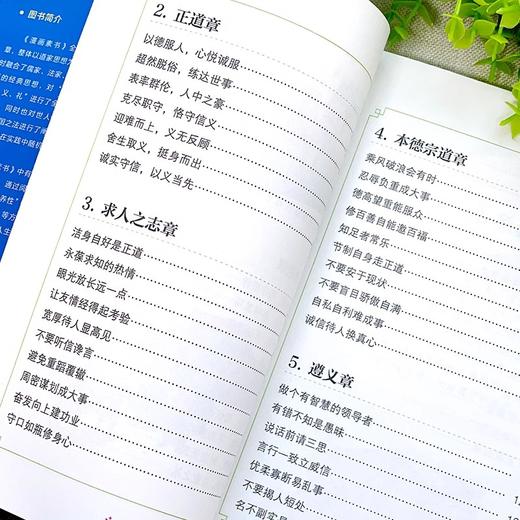 图书简介
《漫画素书》全
章，整体以道家思想为
时融合了儒家、法家、
的经典思想，对“
义、礼”进行了全
同时也对世人
国之法进行了阐
在实践中随机
2. 正道章
以德服人，心悦诚服
超然脱俗，练达世事
表率群伦，人中之豪
克尽职守，恪守信义
迎难而上，义无反顾
舍生取义，挺身而出
诚实守信，以义当先
3. 求人之志章
洁身自好是正道
永葆求知的热情
眼光放长远一点
让友情经得起考验
宽厚待人显高见
不要听信谗言
避免重蹈覆辙
周密谋划成大事
奋发向上建功业
守口如瓶修身心
4. 本德宗道章
乘风破浪会有时
忍辱负重成大事
德高望重能服众
修百善自能邀百福
知足者常乐
节制自身走正道
不要安于现状
不要盲目骄傲自满
自私自利难成事
诚信待人换真心
5. 遵义章
做个有智慧的领导者
有错不知是愚昧
说话前请三思
言行一致立威信
优柔寡断易乱事
不要揭人短处
名不副实